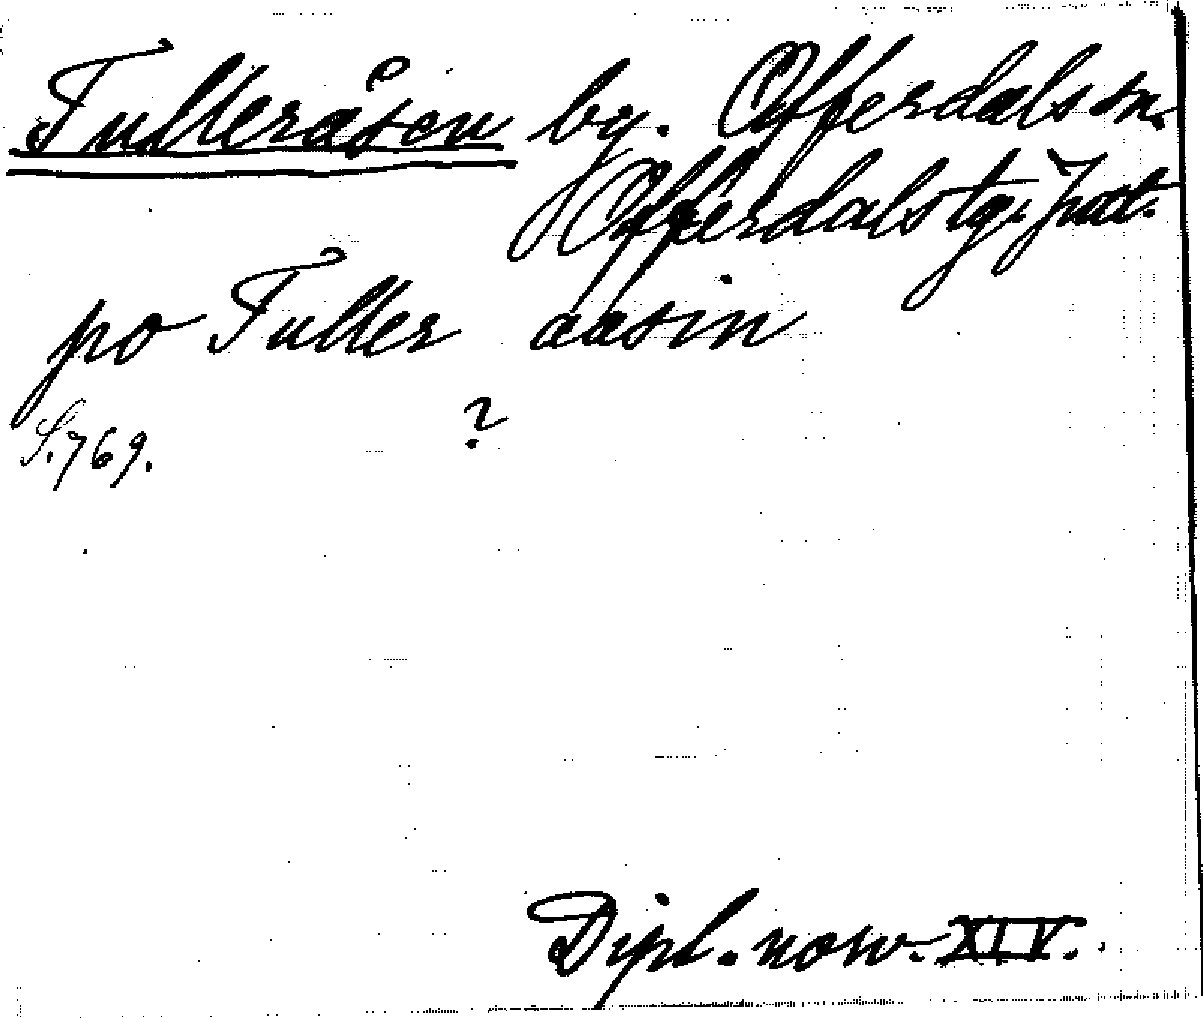 Fulleråsen by. Offerdals sn.
Offerdals tg. Jämt.
po Fuller aasin
S. 769. ?
Dipl. norv. XIV.